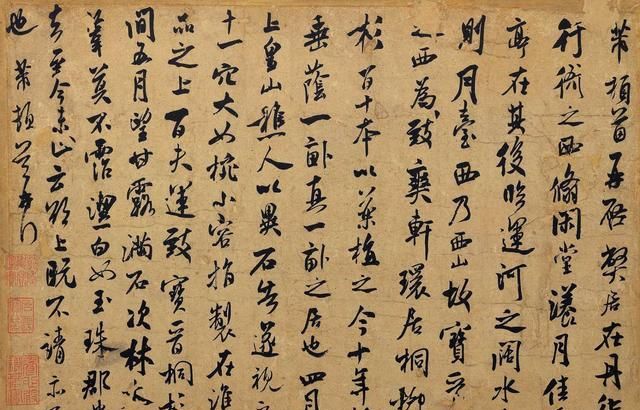 芾頓首再啓弊居在丹徒
行衙之西翛閑堂漾月佳
亭在其後臨運河之闊水
則月臺西乃西山故寶晉
之西為致爽軒環居桐柳
杉百十本以藥植之今十年
垂蔭一畝真一畝之居也四月
上皇山樵人以異石告遂視之
十一穴大如椀小容指製在淮
品之上百夫運致寶晉桐杉
間五月望甘露滿石次林木
葦莫不霑潔白如玉珠郡中
去至今未止云欲上既不請亦
也芾頓首